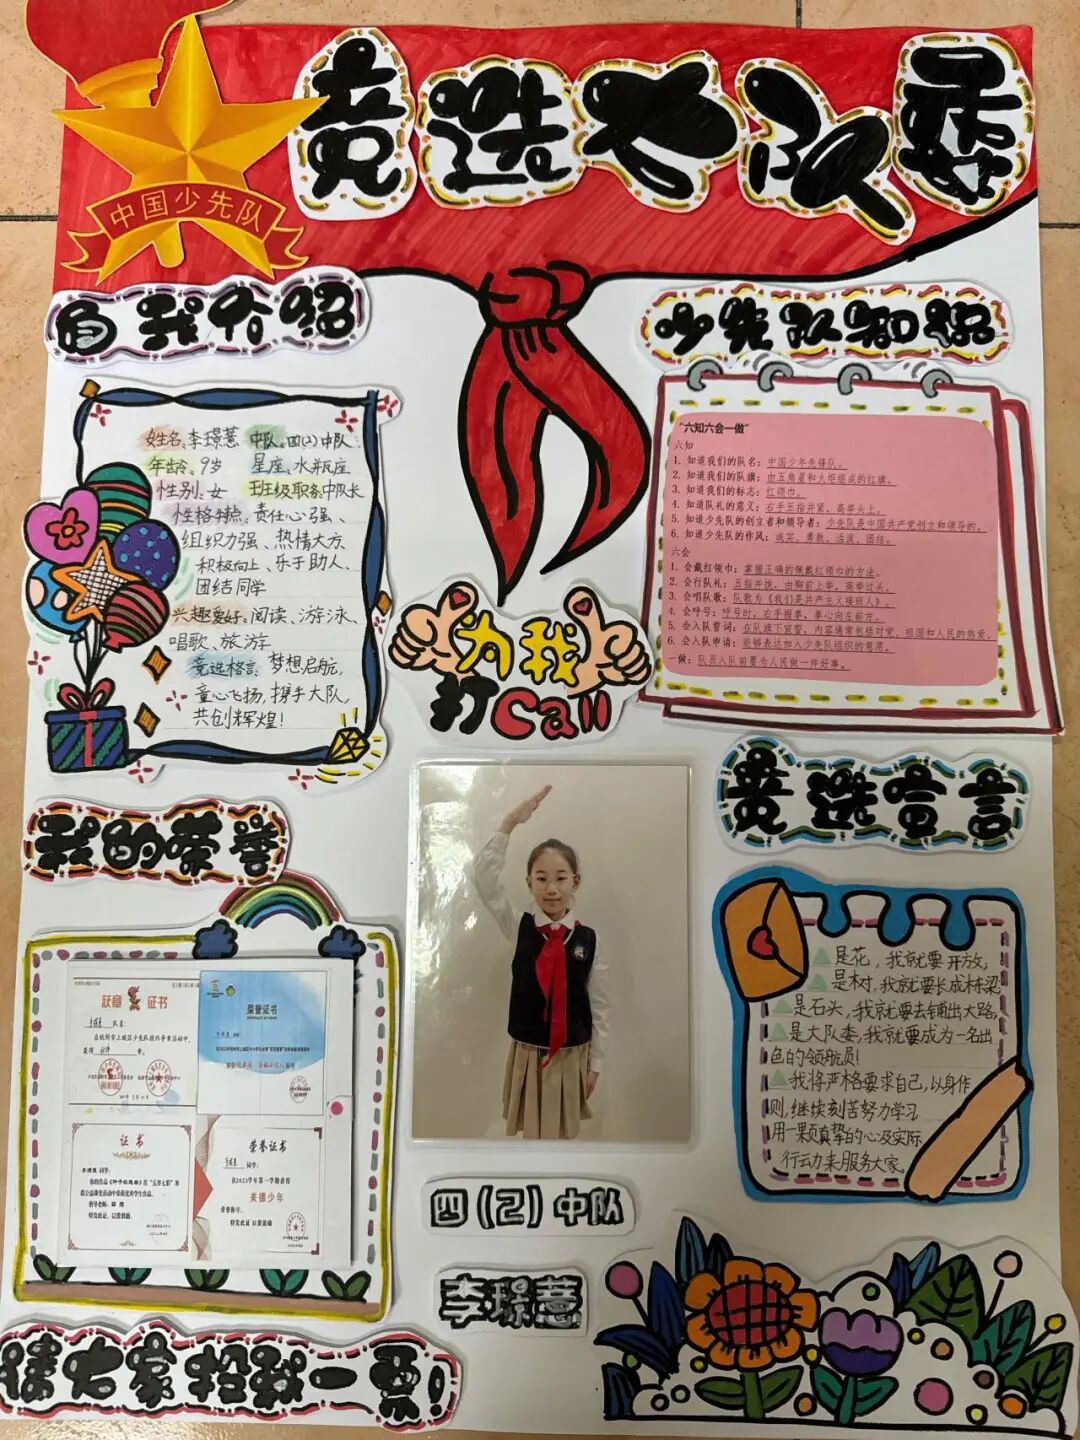 竞选大队委
中国少先队
自我介绍
姓名、李璟薏 中队、四(2)中队
年龄、9岁 星座、水瓶座
性别、女 班级职务:中队长
性格特点、责任心强、
组织力强、热情大方
积极向上、乐于助人、
团结同学
兴趣爱好、阅读、游泳、
唱歌、旅游
竞选格言:梦想启航,
童心飞扬,携手大队,
共创辉煌!
少先队知识
“六知六会一做”
六知
1. 知道我们的队名:中国少年先锋队。
2. 知道我们的队旗:由五角星和火炬组成的红旗。
3. 知道我们的标志:红领巾。
4. 知道队礼的意义:右手五指并紧,高举头上。
5. 知道少先队的创立者和领导者:少先队是中国共产党创立和领导的。
6. 知道少先队的作风:诚实、勇敢、活泼、团结。
六会
1. 会戴红领巾:掌握正确的佩戴红领巾的方法。
2. 会行队礼:五指并拢,由胸前上举,高举过头。
3. 会唱队歌:队歌为《我们是共产主义接班人》。
4. 会呼号:呼号时,右手握拳,拳心向左前方。
5. 会入队誓词:在队旗下宣誓,内容通常包括对党、祖国和人民的热爱。
6. 会入队申请:能够表达加入少先队组织的意愿。
一做:队员入队前要为人民做一件好事。
为我
打Call
我的荣誉
获章 证书
队员:
在杭州市上城区少先队校外争章活动中,
获得 章。
荣誉证书
证书
李璟薏 同学:
指导老师:
特发此证,以资鼓励。
荣誉证书
同学:
在2023学年第一学期获得
美德少年
荣誉称号。
特发此证 以资鼓励
竞选宣言
是花,我就要开放;
是树,我就要长成栋梁;
是石头,我就要去铺出大路;
是大队委,我就要成为一名出
色的领航员!
我将严格要求自己,以身作
则,继续刻苦努力学习
用一颗真挚的心及实际
行动来服务大家。
四(2)中队
李璟薏
请大家投我一票!